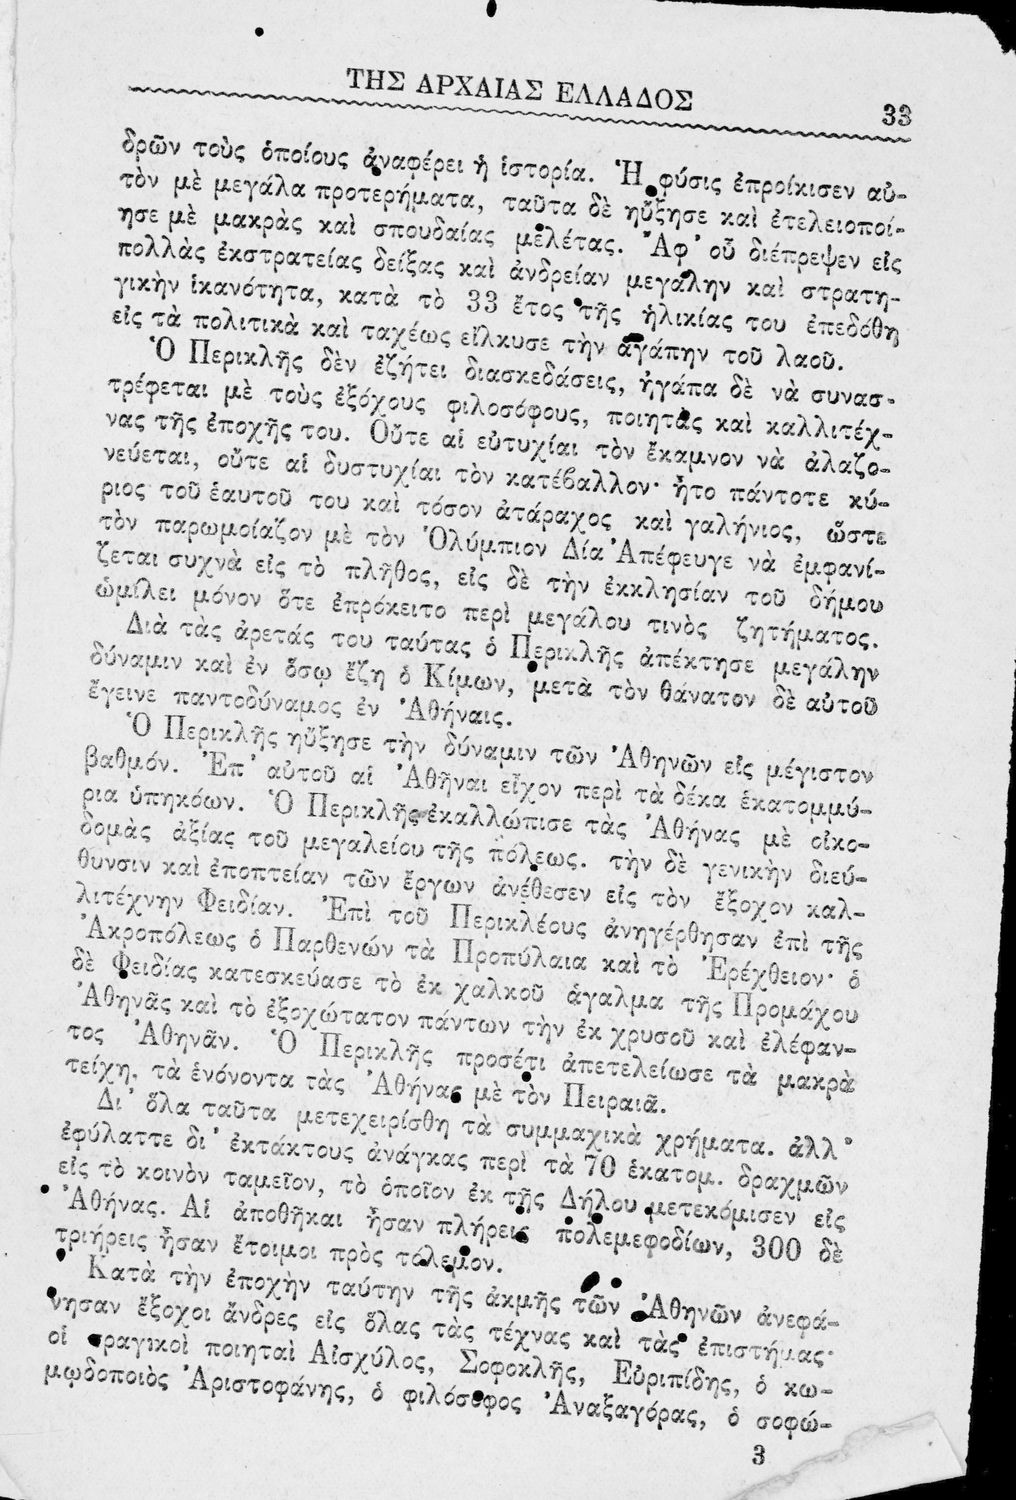 ΤΗΣ ΑΡΧΑΙΑΣ ΕΛΛΑΔΟΣ
33
δρῶν τοὺς ὁποίους ἀναφέρει ἡ ἱστορία. Ἡ φύσις ἐπροίκισεν αὐ-
τὸν μὲ μεγάλα προτερήματα, ταῦτα δὲ ηὔξησε καὶ ἐτελειοποί-
ησε μὲ μακρὰς καὶ σπουδαίας μελέτας. Ἀφ᾽ οὗ διέπρεψεν εἰς
πολλὰς ἐκστρατείας δείξας καὶ ἀνδρείαν μεγάλην καὶ στρατη-
γικὴν ἱκανότητα, κατὰ τὸ 33 ἔτος τῆς ἡλικίας του ἐπεδόθη
εἰς τὰ πολιτικὰ καὶ ταχέως εἵλκυσε τὴν ἀγάπην τοῦ λαοῦ.
Ὁ Περικλῆς δὲν ἐζήτει διασκεδάσεις, ἠγάπα δὲ νὰ συνασ-
τρέφεται μὲ τοὺς ἐξόχους φιλοσόφους, ποιητὰς καὶ καλλιτέχ-
νας τῆς ἐποχῆς του. Οὔτε αἱ εὐτυχίαι τὸν ἔκαμνον νὰ ἀλαζο-
νεύεται, οὔτε αἱ δυστυχίαι τὸν κατέβαλλον· ἦτο πάντοτε κύ-
ριος τοῦ ἑαυτοῦ του καὶ τόσον ἀτάραχος καὶ γαλήνιος, ὥστε
τὸν παρωμοίαζον μὲ τὸν Ὀλύμπιον Δία Ἀπέφευγε νὰ ἐμφανί-
ζεται συχνὰ εἰς τὸ πλῆθος, εἰς δὲ τὴν ἐκκλησίαν τοῦ δήμου
ὡμίλει μόνον ὅτε ἐπρόκειτο περὶ μεγάλου τινὸς ζητήματος.
Διὰ τὰς ἀρετάς του ταύτας ὁ Περικλῆς ἀπέκτησε μεγάλην
δύναμιν καὶ ἐν ὅσῳ ἔζη ὁ Κίμων, μετὰ τὸν θάνατον δὲ αὐτοῦ
ἔγεινε παντοδύναμος ἐν Ἀθήναις.
Ὁ Περικλῆς ηὔξησε τὴν δύναμιν τῶν Ἀθηνῶν εἰς μέγιστον
βαθμόν. Ἐπ᾽ αὐτοῦ αἱ Ἀθῆναι εἶχον περὶ τὰ δέκα ἑκατομμύ-
ρια ὑπηκόων. Ὁ Περικλῆς ἐκαλλώπισε τὰς Ἀθήνας μὲ οἰκο-
δομὰς ἀξίας τοῦ μεγαλείου τῆς πόλεως. τὴν δὲ γενικὴν διεύ-
θυνσιν καὶ ἐποπτείαν τῶν ἔργων ἀνέθεσεν εἰς τὸν ἔξοχον καλ-
λιτέχνην Φειδίαν. Ἐπὶ τοῦ Περικλέους ἀνηγέρθησαν ἐπὶ τῆς
Ἀκροπόλεως ὁ Παρθενών τὰ Προπύλαια καὶ τὸ Ἐρέχθειον· ὁ
δὲ Φειδίας κατεσκεύασε τὸ ἐκ χαλκοῦ ἄγαλμα τῆς Προμάχου
Ἀθηνᾶς καὶ τὸ ἐξοχώτατον πάντων τὴν ἐκ χρυσοῦ καὶ ἐλέφαν-
τος Ἀθηνᾶν. Ὁ Περικλῆς προσέτι ἀπετελείωσε τὰ μακρὰ
τείχη. τὰ ἑνόνοντα τὰς Ἀθήνας μὲ τὸν Πειραιᾶ.
Δι᾽ ὅλα ταῦτα μετεχειρίσθη τὰ συμμαχικὰ χρήματα. ἀλλ᾽
ἐφύλαττε δι᾽ ἐκτάκτους ἀνάγκας περὶ τὰ 70 ἑκατομ. δραχμῶν
εἰς τὸ κοινὸν ταμεῖον, τὸ ὁποῖον ἐκ τῆς Δήλου μετεκόμισεν εἰς
Ἀθήνας. Αἱ ἀποθῆκαι ἦσαν πλήρεις πολεμεφοδίων, 300 δὲ
τριήρεις ἦσαν ἕτοιμοι πρὸς πόλεμον.
Κατὰ τὴν ἐποχὴν ταύτην τῆς ἀκμῆς τῶν Ἀθηνῶν ἀνεφά-
νησαν ἔξοχοι ἄνδρες εἰς ὅλας τὰς τέχνας καὶ τὰς ἐπιστήμας·
οἱ τραγικοὶ ποιηταὶ Αἰσχύλος, Σοφοκλῆς, Εὐριπίδης, ὁ κω-
μῳδοποιὸς Ἀριστοφάνης, ὁ φιλόσοφος Ἀναξαγόρας, ὁ σοφώ-
3